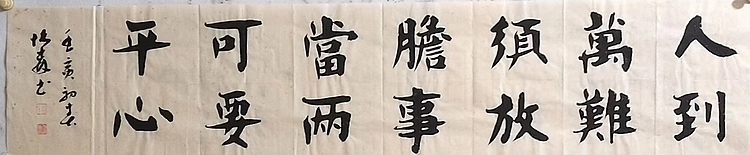 人到
萬難
須放
膽事
當兩
可要
平心
壬寅初春
书